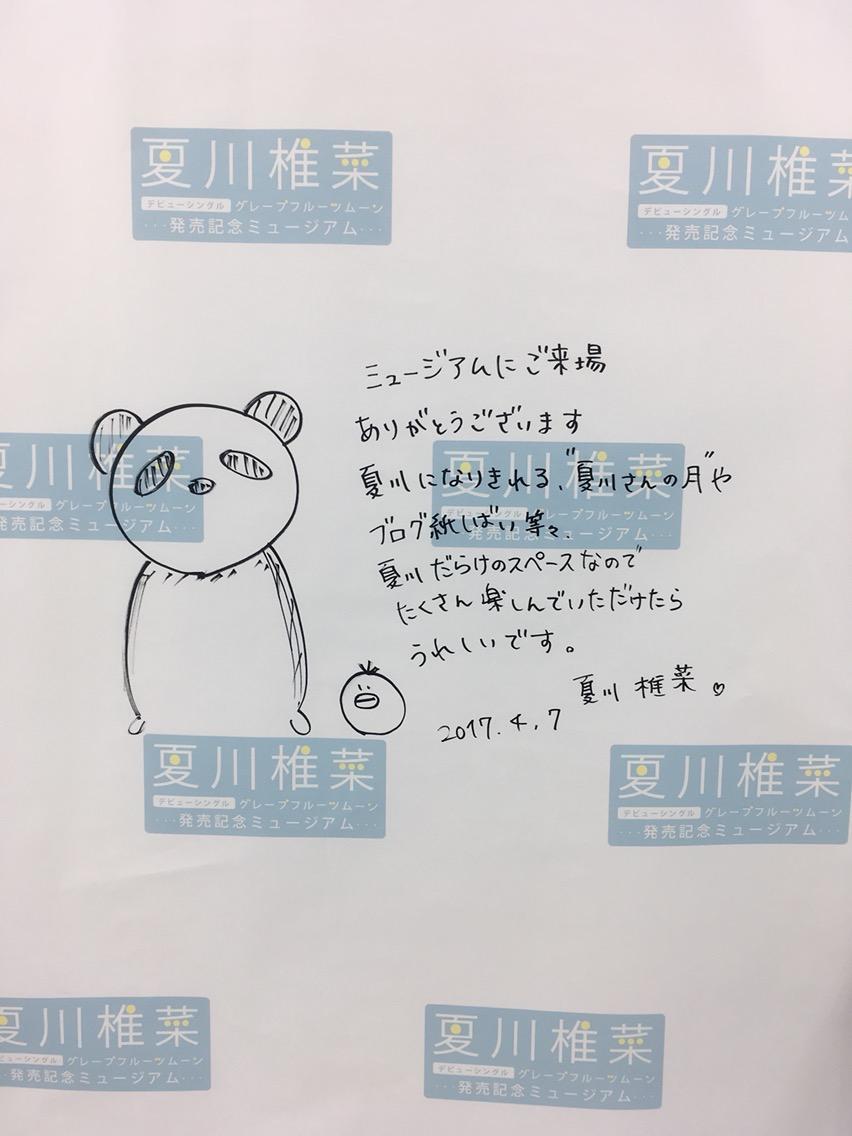 夏川椎菜
デビューシングル グレープフルーツムーン
···発売記念ミュージアム···
夏川椎
デビューシングル グレープフルーツム
···発売記念ミュージアム
ミュージアムにご来場
ありがとうございます
夏川になりきれる、"夏川さんの月"や
ブログ紙しばい等々、
夏川だらけのスペースなので
たくさん楽しんでいただけたら
うれしいです。
夏川 椎菜♡
2017.4.7
夏川椎菜
ューシングル グレープフルーツムーン
発売記念ミュージアム···
夏川椎菜
デビューシングル グレープフルーツムーン
発売記念ミュージアム···
夏川椎菜
デビューシングル グレープフルーツムーン
···発売記念ミュージアム···
夏川椎菜
デビューシングル グレープフルーツムーン
···発売記念ミュージアム···
夏川椎菜
ューシングル グレープフルーツムーン
··発売記念ミュージアム···
夏川椎菜
デビューシングル グレープフルーツムーン
···発売記念ミュージアム···